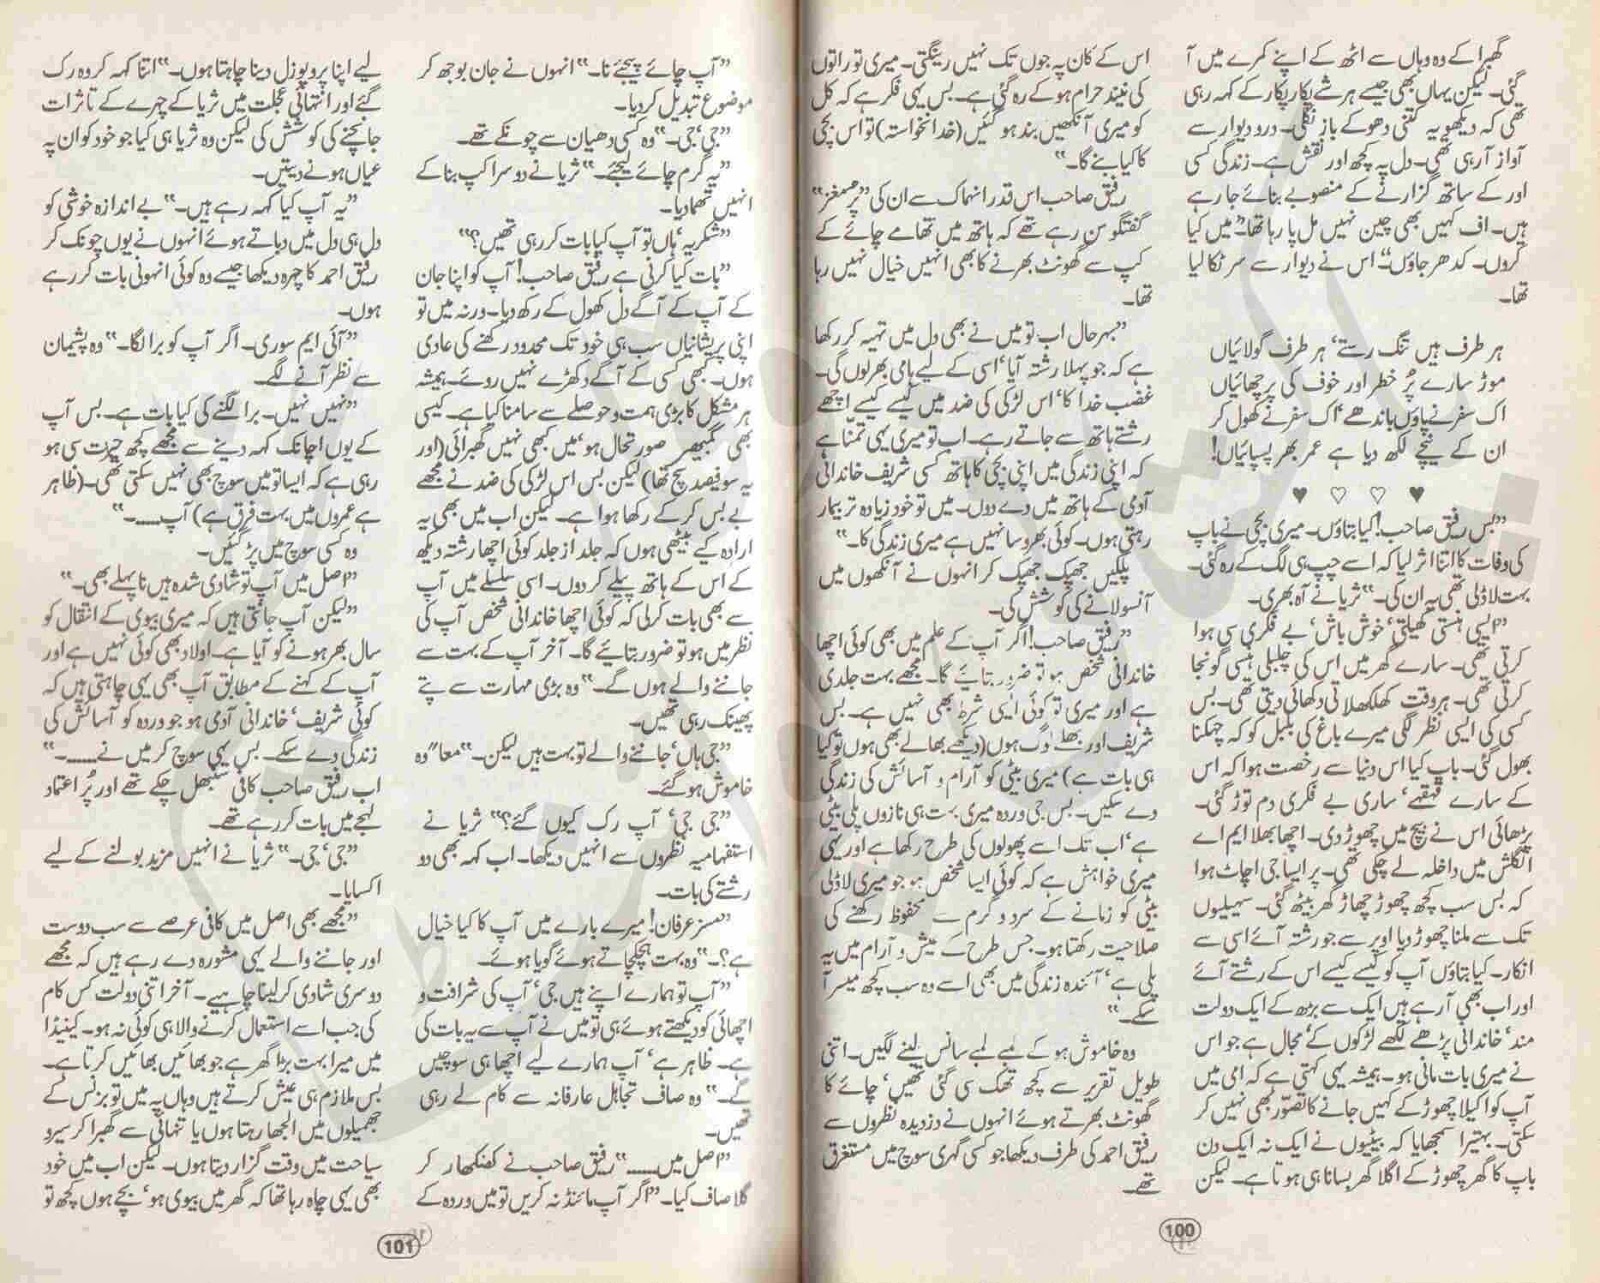 گھبرا کے وہ وہاں سے اٹھ کے اپنے کمرے میں آ
گئی۔ لیکن یہاں بھی جیسے ہر شے پکار پکار کے کہہ رہی
تھی کہ دیکھو یہ کتنی دھوکے باز نکلی۔ در و دیوار سے
آواز آ رہی تھی۔ دل پہ کچھ اور نقش ہے۔ زندگی کسی
اور کے ساتھ گزارنے کے منصوبے بنائے جا رہے
ہیں۔ اف کہیں بھی چین نہیں مل پا رہا تھا۔ ”میں کیا
کروں۔ کدھر جاؤں“ اس نے دیوار سے سر ٹکا لیا
تھا۔
ہر طرف ہیں تنگ رستے‘ ہر طرف گولائیاں
موڑ سارے پُر خطر اور خوف کی پرچھائیاں
اک سفر نے پاؤں باندھے‘ اک سفر نے کھول کر
ان کے نیچے لکھ دیا ہے عمر بھر پسپائیاں!
♥ ♡ ♡ ♥
”بس رفیق صاحب! کیا بتاؤں۔ میری بچی نے باپ
کی وفات کا اتنا اثر لیا کہ اسے چپ ہی لگ کے رہ گئی۔
بہت لاڈلی تھی یہ ان کی۔“ ثریا نے آہ بھری۔
”ایسی ہنستی کھیلتی‘ خوش باش‘ بے فکری سی ہوا
کرتی تھی۔ سارے گھر میں اس کی چلبلی ہنسی گونجا
کرتی تھی۔ ہر وقت کھلکھلاتی دکھائی دیتی تھی۔ بس
کسی کی ایسی نظر لگی میرے باغ کی بلبل کو کہ چہکنا
بھول گئی۔ باپ کیا اس دنیا سے رخصت ہوا کہ اس
کے سارے قہقہے‘ ساری بے فکری دم توڑ گئی۔
پڑھائی اس نے بیچ میں چھوڑ دی۔ اچھا بھلا ایم اے
انگلش میں داخلہ لے چکی تھی۔ پر ایسا جی اچاٹ ہوا
کہ بس سب کچھ چھوڑ چھاڑ گھر بیٹھ گئی۔ سہیلیوں
تک سے ملنا چھوڑ دیا اوپر سے جو رشتہ آئے اسی سے
انکار۔ کیا بتاؤں آپ کو کیسے کیسے اس کے رشتے آئے
اور اب بھی آ رہے ہیں ایک سے بڑھ کے ایک دولت
مند‘ خاندانی پڑھے لکھے لڑکوں کے‘ مجال ہے جو اس
نے میری بات مانی ہو۔ ہمیشہ یہی کہتی ہے کہ امی میں
آپ کو اکیلا چھوڑ کے کہیں جانے کا تصوّر بھی نہیں کر
سکتی۔ بہتیرا سمجھایا کہ بیٹیوں نے ایک نہ ایک دن
باپ کا گھر چھوڑ کے اگلا گھر بسانا ہی ہوتا ہے۔ لیکن
اس کے کان پہ جوں تک نہیں رینگتی۔ میری تو راتوں
کی نیند حرام ہو کے رہ گئی ہے۔ بس یہی فکر ہے کہ کل
کو میری آنکھیں بند ہو گئیں (خدانخواستہ) تو اس بچی
کا کیا بنے گا۔“
رفیق صاحب اس قدر انہماک سے ان کی ”پرمغز“
گفتگو سن رہے تھے کہ ہاتھ میں تھامے چائے کے
کپ سے گھونٹ بھرنے کا بھی انہیں خیال نہیں رہا
تھا۔
”بہرحال اب تو میں نے بھی دل میں تہیہ کر رکھا
ہے کہ جو پہلا رشتہ آیا‘ اسی کے لیے ہامی بھر لوں گی۔
غضب خدا کا‘ اس لڑکی کی ضد میں کیسے کیسے اچھے
رشتے ہاتھ سے جاتے رہے۔ اب تو میری یہی تمنّا ہے
کہ اپنی زندگی میں اپنی بچی کا ہاتھ کسی شریف خاندانی
آدمی کے ہاتھ میں دے دوں۔ میں تو خود زیادہ تر بیمار
رہتی ہوں۔ کوئی بھروسا نہیں ہے میری زندگی کا۔“
پلکیں جھپک جھپک کر انہوں نے آنکھوں میں
آنسو لانے کی کوشش کی۔
”رفیق صاحب! اگر آپ کے علم میں بھی کوئی اچھا
خاندانی شخص ہو تو ضرور بتائیے گا۔ مجھے بہت جلدی
ہے اور میری تو کوئی ایسی شرط بھی نہیں ہے۔ بس
شریف اور بھلے لوگ ہوں (دیکھے بھالے بھی ہوں تو کیا
ہی بات ہے) میری بیٹی کو آرام و آسائش کی زندگی
دے سکیں۔ بس جی وردہ میری بہت ہی نازوں پلی بیٹی
ہے‘ اب تک اسے پھولوں کی طرح رکھا ہے اور یہی
میری خواہش ہے کہ کوئی ایسا شخص ہو جو میری لاڈلی
بیٹی کو زمانے کے سرد و گرم سے محفوظ رکھنے کی
صلاحیت رکھتا ہو۔ جس طرح کے عیش و آرام میں یہ
پلی ہے‘ آئندہ زندگی میں بھی اسے وہ سب کچھ میسر آ
سکے۔“
وہ خاموش ہو کے لمبے لمبے سانس لینے لگیں۔ اتنی
طویل تقریر سے کچھ تھک سی گئی تھیں‘ چائے کا
گھونٹ بھرتے ہوئے انہوں نے دزدیدہ نظروں سے
رفیق احمد کی طرف دیکھا جو کسی گہری سوچ میں مستغرق
تھے۔
100
”آپ چائے پیجئے نا۔“ انہوں نے جان بوجھ کر
موضوع تبدیل کر دیا۔
”جی‘ جی۔“ وہ کسی دھیان سے چونکے تھے۔
”یہ گرم چائے لیجئے۔“ ثریا نے دوسرا کپ بنا کے
انہیں تھما دیا۔
”شکریہ‘ ہاں تو آپ کیا بات کر رہی تھیں؟“
”بات کیا کرنی ہے رفیق صاحب! آپ کو اپنا جان
کے آپ کے آگے دل کھول کے رکھ دیا۔ ورنہ میں تو
اپنی پریشانیاں سب ہی خود تک محدود رکھنے کی عادی
ہوں۔ کبھی کسی کے آگے دکھڑے نہیں روئے۔ ہمیشہ
ہر مشکل کا بڑی ہمت و حوصلے سے سامنا کیا ہے۔ کیسی
بھی گمبھیر صورتحال ہو‘ میں کبھی نہیں گھبرائی (اور
یہ سو فیصد سچ تھا) لیکن بس اس لڑکی کی ضد نے مجھے
بے بس کر کے رکھا ہوا ہے۔ لیکن اب میں بھی یہ
ارادہ کیے بیٹھی ہوں کہ جلد از جلد کوئی اچھا رشتہ دیکھ
کے اس کے ہاتھ پیلے کر دوں۔ اسی سلسلے میں آپ
سے بھی بات کر لی کہ کوئی اچھا خاندانی شخص آپ کی
نظر میں ہو تو ضرور بتائیے گا۔ آخر آپ کے بہت سے
جاننے والے ہوں گے۔“ وہ بڑی مہارت سے پتے
پھینک رہی تھیں۔
”جی ہاں‘ جاننے والے تو بہت ہیں لیکن۔“ معاً وہ
خاموش ہو گئے۔
”جی جی‘ آپ رک کیوں گئے؟“ ثریا نے
استفہامیہ نظروں سے انہیں دیکھا۔ اب کہہ بھی دو
رشتے کی بات۔
”مسز عرفان! میرے بارے میں آپ کا کیا خیال
ہے؟۔“ وہ بہت ہچکچاتے ہوئے گویا ہوئے۔
”آپ تو ہمارے اپنے ہیں جی‘ آپ کی شرافت و
اچھائی کو دیکھتے ہوئے ہی تو میں نے آپ سے یہ بات کی
ہے۔ ظاہر ہے‘ آپ ہمارے لیے اچھا ہی سوچیں
گے۔“ وہ صاف تجاہل عارفانہ سے کام لے رہی
تھیں۔
”اصل میں......“ رفیق صاحب نے کھنکھار کر
گلا صاف کیا۔ ”اگر آپ مائنڈ نہ کریں تو میں وردہ کے
لیے اپنا پروپوزل دینا چاہتا ہوں۔“ اتنا کہہ کر وہ رک
گئے اور انتہائی عجلت میں ثریا کے چہرے کے تاثرات
جانچنے کی کوشش کی لیکن وہ ثریا ہی کیا جو خود کو ان پہ
عیاں ہونے دیتیں۔
”یہ آپ کیا کہہ رہے ہیں۔“ بے اندازہ خوشی کو
دل ہی دل میں دباتے ہوئے انہوں نے یوں چونک کر
رفیق احمد کا چہرہ دیکھا جیسے وہ کوئی انہونی بات کر رہے
ہوں۔
”آئی ایم سوری۔ اگر آپ کو برا لگا۔“ وہ پشیمان
سے نظر آنے لگے۔
”نہیں نہیں۔ برا لگنے کی کیا بات ہے۔ بس آپ
کے یوں اچانک کہہ دینے سے مجھے کچھ حیرت سی ہو
رہی ہے کہ ایسا تو میں سوچ بھی نہیں سکتی تھی۔ (ظاہر
ہے عمروں میں بہت فرق ہے) آپ......۔“
وہ کسی سوچ میں پڑ گئیں۔
”اصل میں آپ تو شادی شدہ ہیں نا پہلے بھی۔“
”لیکن آپ جانتی ہیں کہ میری بیوی کے انتقال کو
سال بھر ہونے کو آیا ہے۔ اولاد بھی کوئی نہیں ہے اور
آپ کے کہنے کے مطابق آپ بھی یہی چاہتی ہیں کہ
کوئی شریف‘ خاندانی آدمی ہو جو وردہ کو آسائش کی
زندگی دے سکے۔ بس یہی سوچ کر میں نے......۔“
اب رفیق صاحب کافی سنبھل چکے تھے اور پُر اعتماد
لہجے میں بات کر رہے تھے۔
”جی‘ جی۔“ ثریا نے انہیں مزید بولنے کے لیے
اکسایا۔
”مجھے بھی اصل میں کافی عرصے سے سب دوست
اور جاننے والے یہی مشورہ دے رہے ہیں کہ مجھے
دوسری شادی کر لینا چاہیے۔ آخر اتنی دولت کس کام
کی جب اسے استعمال کرنے والا ہی کوئی نہ ہو۔ کینیڈا
میں میرا بہت بڑا گھر ہے جو بھائیں بھائیں کرتا ہے۔
بس ملازم ہی عیش کرتے ہیں وہاں پہ میں تو بزنس کے
جھمیلوں میں الجھا رہتا ہوں یا تنہائی سے گھبرا کر سیر و
سیاحت میں وقت گزار دیتا ہوں۔ لیکن اب میں خود
بھی یہی چاہ رہا تھا کہ گھر میں بیوی ہو‘ بچے ہوں کچھ تو
101